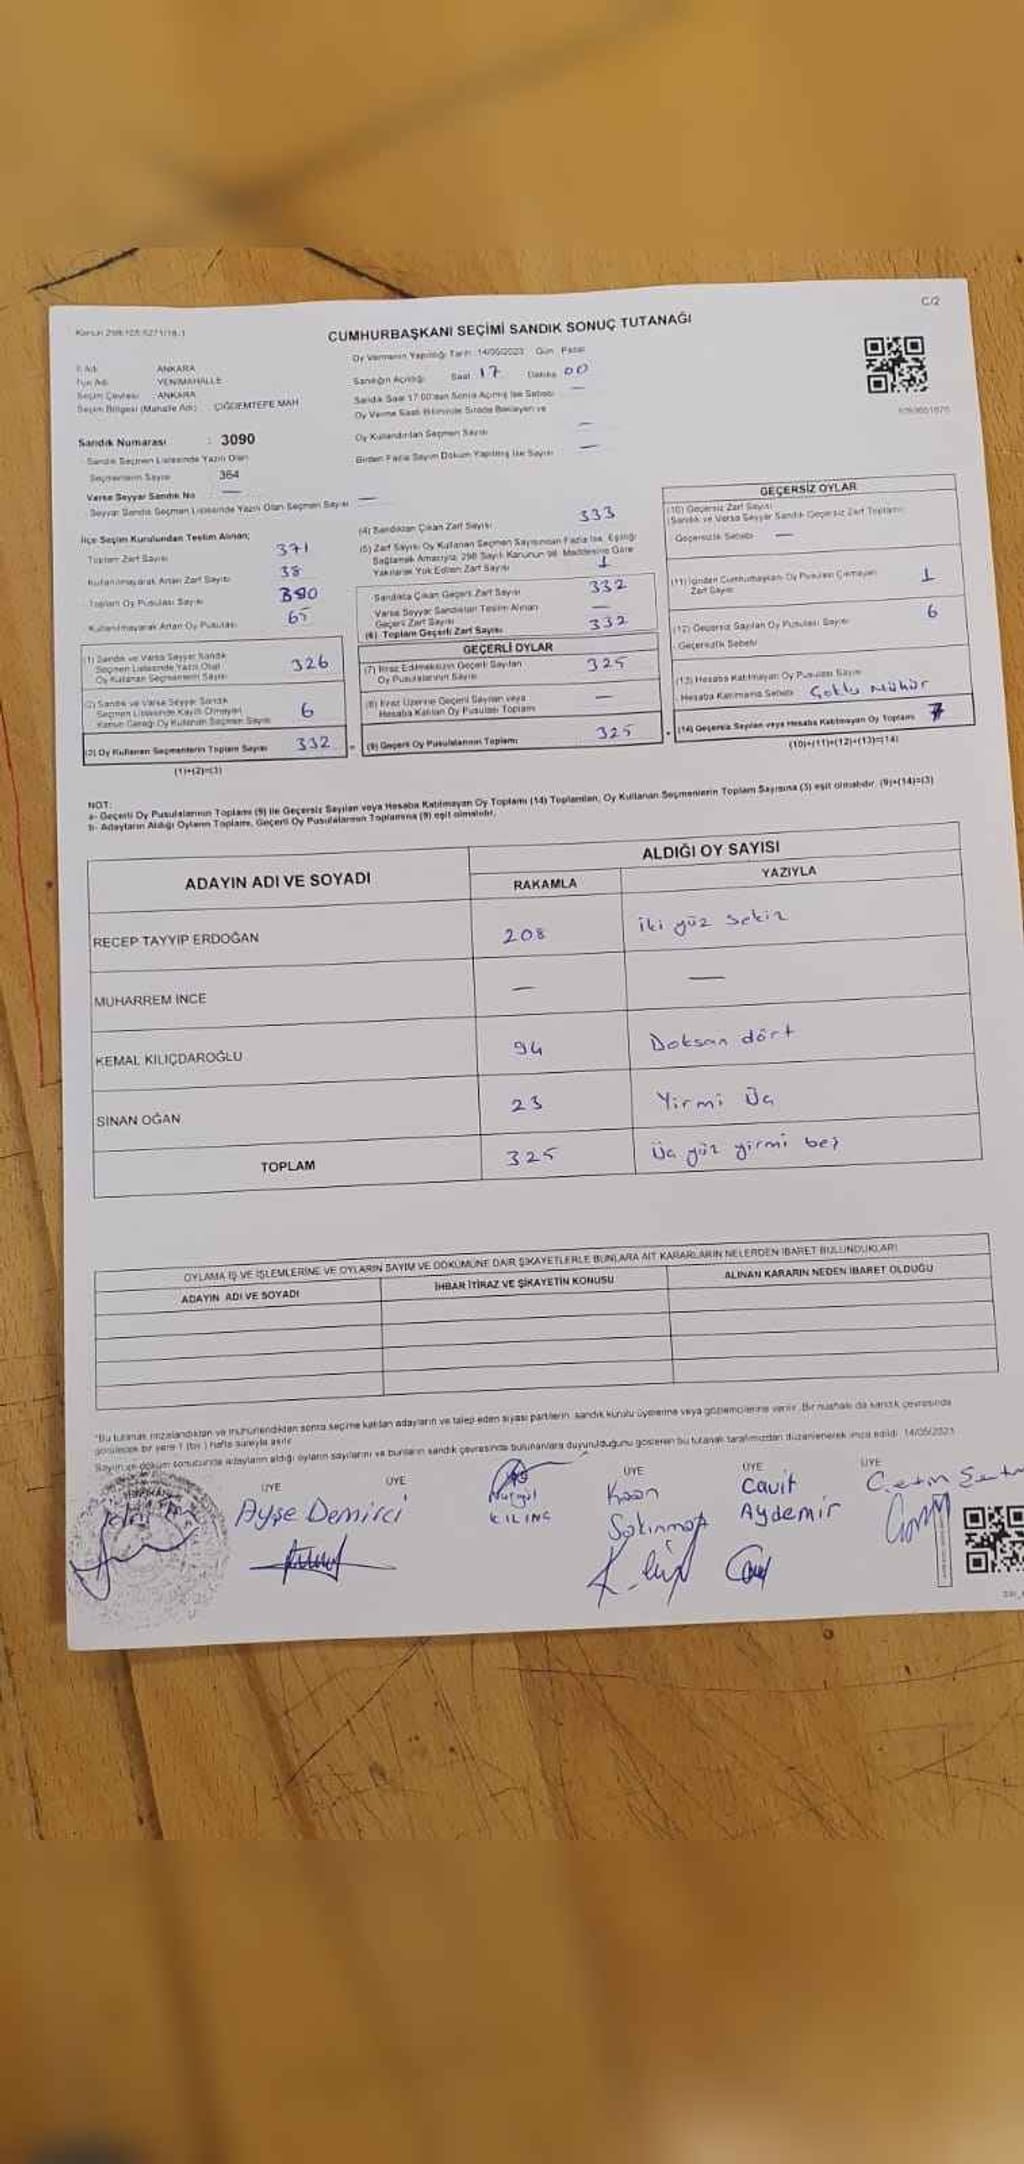 C/2
CUMHURBAŞKANI SEÇİMİ SANDIK SONUÇ TUTANAĞI
Oy Vermenin Yapıldığı Tarih: 14/05/2023 Gün: Pazar
İl Adı ANKARA
İlçe Adı YENİMAHALLE
Seçim Çevresi ANKARA
Seçim Bölgesi (Mahalle Adı) ÇİĞDEMTEPE MAH
Sandığın Açıldığı Saat 17 Dakika 00
Sandık Saat 17:00'dan Sonra Açılmış İse Sebebi —
Oy Verme Saati Bitiminde Sırada Bekleyen ve
Oy Kullandırılan Seçmen Sayısı —
Birden Fazla Sayım Döküm Yapılmış İse Sayısı —
Sandık Numarası : 3090
Sandık Seçmen Listesinde Yazılı Olan
Seçmenlerin Sayısı 364
Varsa Seyyar Sandık No —
Seyyar Sandık Seçmen Listesinde Yazılı Olan Seçmen Sayısı —
İlçe Seçim Kurulundan Teslim Alınan;
Toplam Zarf Sayısı 371
Kullanılmayarak Artan Zarf Sayısı 38
Toplam Oy Pusulası Sayısı 390
Kullanılmayarak Artan Oy Pusulası 65
(1) Sandık ve Varsa Seyyar Sandık
Seçmen Listesinde Yazılı Olup
Oy Kullanan Seçmenlerin Sayısı 326
(2) Sandık ve Varsa Seyyar Sandık
Seçmen Listesinde Kayıtlı Olmayan
Kanun Gereği Oy Kullanan Seçmen Sayısı 6
(3) Oy Kullanan Seçmenlerin Toplam Sayısı 332
(1)+(2)=(3)
(4) Sandıktan Çıkan Zarf Sayısı 333
(5) Zarf Sayısı Oy Kullanan Seçmen Sayısından Fazla İse, Eşitliği
Sağlamak Amacıyla, 298 Sayılı Kanunun 98. Maddesine Göre
Yakılarak Yok Edilen Zarf Sayısı 1
Sandıkta Çıkan Geçerli Zarf Sayısı 332
Varsa Seyyar Sandıktan Teslim Alınan
Geçerli Zarf Sayısı —
(6) Toplam Geçerli Zarf Sayısı 332
GEÇERLİ OYLAR
(7) İtiraz Edilmeksizin Geçerli Sayılan
Oy Pusulalarının Sayısı 325
(8) İtiraz Üzerine Geçerli Sayılan veya
Hesaba Katılan Oy Pusulası Toplamı —
(9) Geçerli Oy Pusulalarının Toplamı 325
GEÇERSİZ OYLAR
(10) Geçersiz Zarf Sayısı
(Sandık ve Varsa Seyyar Sandık Geçersiz Zarf Toplamı)
Geçersizlik Sebebi —
(11) İçinden Cumhurbaşkanı Oy Pusulası Çıkmayan
Zarf Sayısı 1
(12) Geçersiz Sayılan Oy Pusulası Sayısı 6
Geçersizlik Sebebi
(13) Hesaba Katılmayan Oy Pusulası Sayısı
Hesaba Katılmama Sebebi Çoklu Mühür
(14) Geçersiz Sayılan veya Hesaba Katılmayan Oy Toplamı 7
(10)+(11)+(12)+(13)=(14)
NOT:
a- Geçerli Oy Pusulalarının Toplamı (9) ile Geçersiz Sayılan veya Hesaba Katılmayan Oy Toplamı (14) Toplamları, Oy Kullanan Seçmenlerin Toplam Sayısına (3) eşit olmalıdır. (9)+(14)=(3)
b- Adayların Aldığı Oyların Toplamı, Geçerli Oy Pusulalarının Toplamına (9) eşit olmalıdır.
ADAYIN ADI VE SOYADI
ALDIĞI OY SAYISI
RAKAMLA YAZIYLA
RECEP TAYYİP ERDOĞAN 208 İki yüz sekiz
MUHARREM İNCE — —
KEMAL KILIÇDAROĞLU 94 Doksan dört
SİNAN OĞAN 23 Yirmi Üç
TOPLAM 325 Üç yüz yirmi beş
OYLAMA İŞ VE İŞLEMLERİNE VE OYLARIN SAYIM VE DÖKÜMÜNE DAİR ŞİKAYETLERLE BUNLARA AİT KARARLARIN NELERDEN İBARET BULUNDUKLARI
ADAYIN ADI VE SOYADI İHBAR İTİRAZ VE ŞİKAYETİN KONUSU ALINAN KARARIN NEDEN İBARET OLDUĞU
*Bu tutanak imzalandıktan ve mühürlendikten sonra seçime katılan adayların ve talep eden siyasi partilerin, sandık kurulu üyelerine veya gözlemcilerine verilir. Bir nüshası da sandık çevresinde
görülecek bir yere 1 (bir) hafta süreyle asılır.
Sayım ve döküm sonucunda adayların aldığı oyların sayılarını ve bunların sandık çevresinde bulunanlara duyurulduğunu gösteren bu tutanak tarafımızdan düzenlenerek imza edildi. 14/05/2023
ÜYE ÜYE ÜYE ÜYE ÜYE
Ayşe Demirci
Nurgül
KILINÇ
Kaan
Cavit
Aydemir